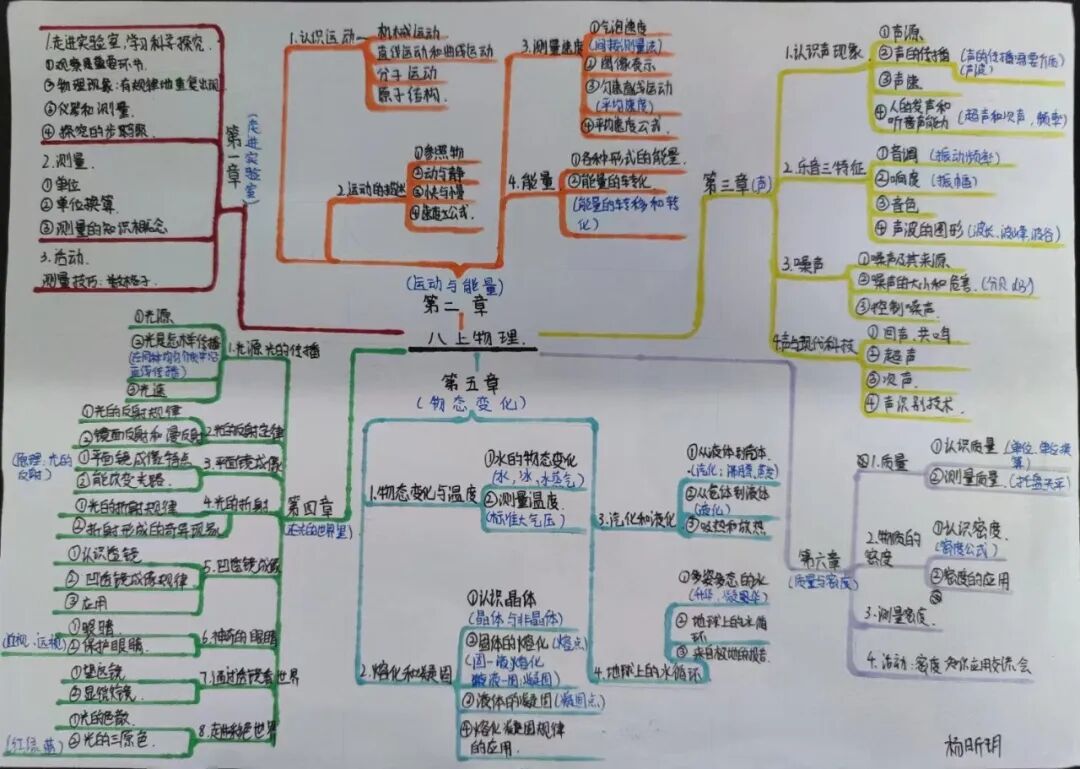 八上物理.
第一章
(走进实验室)
1.走进实验室,学习科学探究.
①观察是重要环节.
②物理现象:有规律地重复出现
③仪器和测量.
④探究的步骤.
2.测量.
①单位
②单位换算.
③测量的知识概念
3.活动.
测量技巧:数格子.
第二章
(运动与能量)
1.认识运动
机械运动
直线运动和曲线运动
分子运动
原子结构.
2.运动的描述
①参照物
②动与静
③快与慢
④速度公式.
3.测量速度
①气泡速度
(间接测量法)
②图像表示
③匀速直线运动
(平均速度)
④平均速度公式.
4.能量
①各种形式的能量.
②能量的转化
(能量的转移和转化)
第三章(声)
1.认识声现象
①声源
②声的传播(声的传播需要介质)
(声波)
③声速
④人的发声和
听音声能力(超声和次声,频率)
2.乐音三特征
①音调(振动频率)
②响度(振幅)
③音色
④声波的图形(波长、波峰、波谷)
3.噪声
①噪声及其来源
②噪声的大小和危害.(分贝 dB)
③控制噪声.
4.声与现代科技
①回声.共鸣
②超声
③次声.
④声识别技术.
第四章
(在光的世界里)
1.光源光的传播
①光源
②光是怎样传播
(在同种均匀介质中沿
直线传播)
③光速
2.光的反射定律
①光的反射规律
②镜面反射和漫反射
3.平面镜成像
①平面镜成像特点
②能改变光路.
(原理:光的
反射)
4.光的折射
①光的折射规律
②折射形成的奇异现象
5.凹透镜成像
①认识透镜
②凹透镜成像规律
③应用
6.神奇的眼睛
①眼睛
②保护眼睛.
(近视.远视)
7.通过透镜看世界
①望远镜
②显微镜.
8.走进彩色世界
①光的色散.
②光的三原色.
(红绿蓝)
第五章
(物态变化)
1.物态变化与温度
①水的物态变化
(水,冰,水蒸气)
②测量温度.
(标准大气压)
2.熔化和凝固
①认识晶体
(晶体与非晶体)
②固体的熔化(熔点)
(固→液熔化
液→固凝固)
③液体的凝固(凝固点)
④熔化凝固规律
的应用.
3.汽化和液化
①从液体到气体.
(汽化:沸腾,蒸发)
②从气体到液体
(液化)
③吸热和放热
4.地球上的水循环
①多姿多态的水
(升华,凝华)
②地球上的水循
环
③来自极地的报告.
第六章
(质量与密度)
1.质量
①认识质量(单位,单位换
算)
②测量质量.(托盘天平)
2.物质的
密度
①认识密度.
(密度公式)
②密度的应用
3.测量密度.
4.活动:密度知识应用交流会
杨昕玥